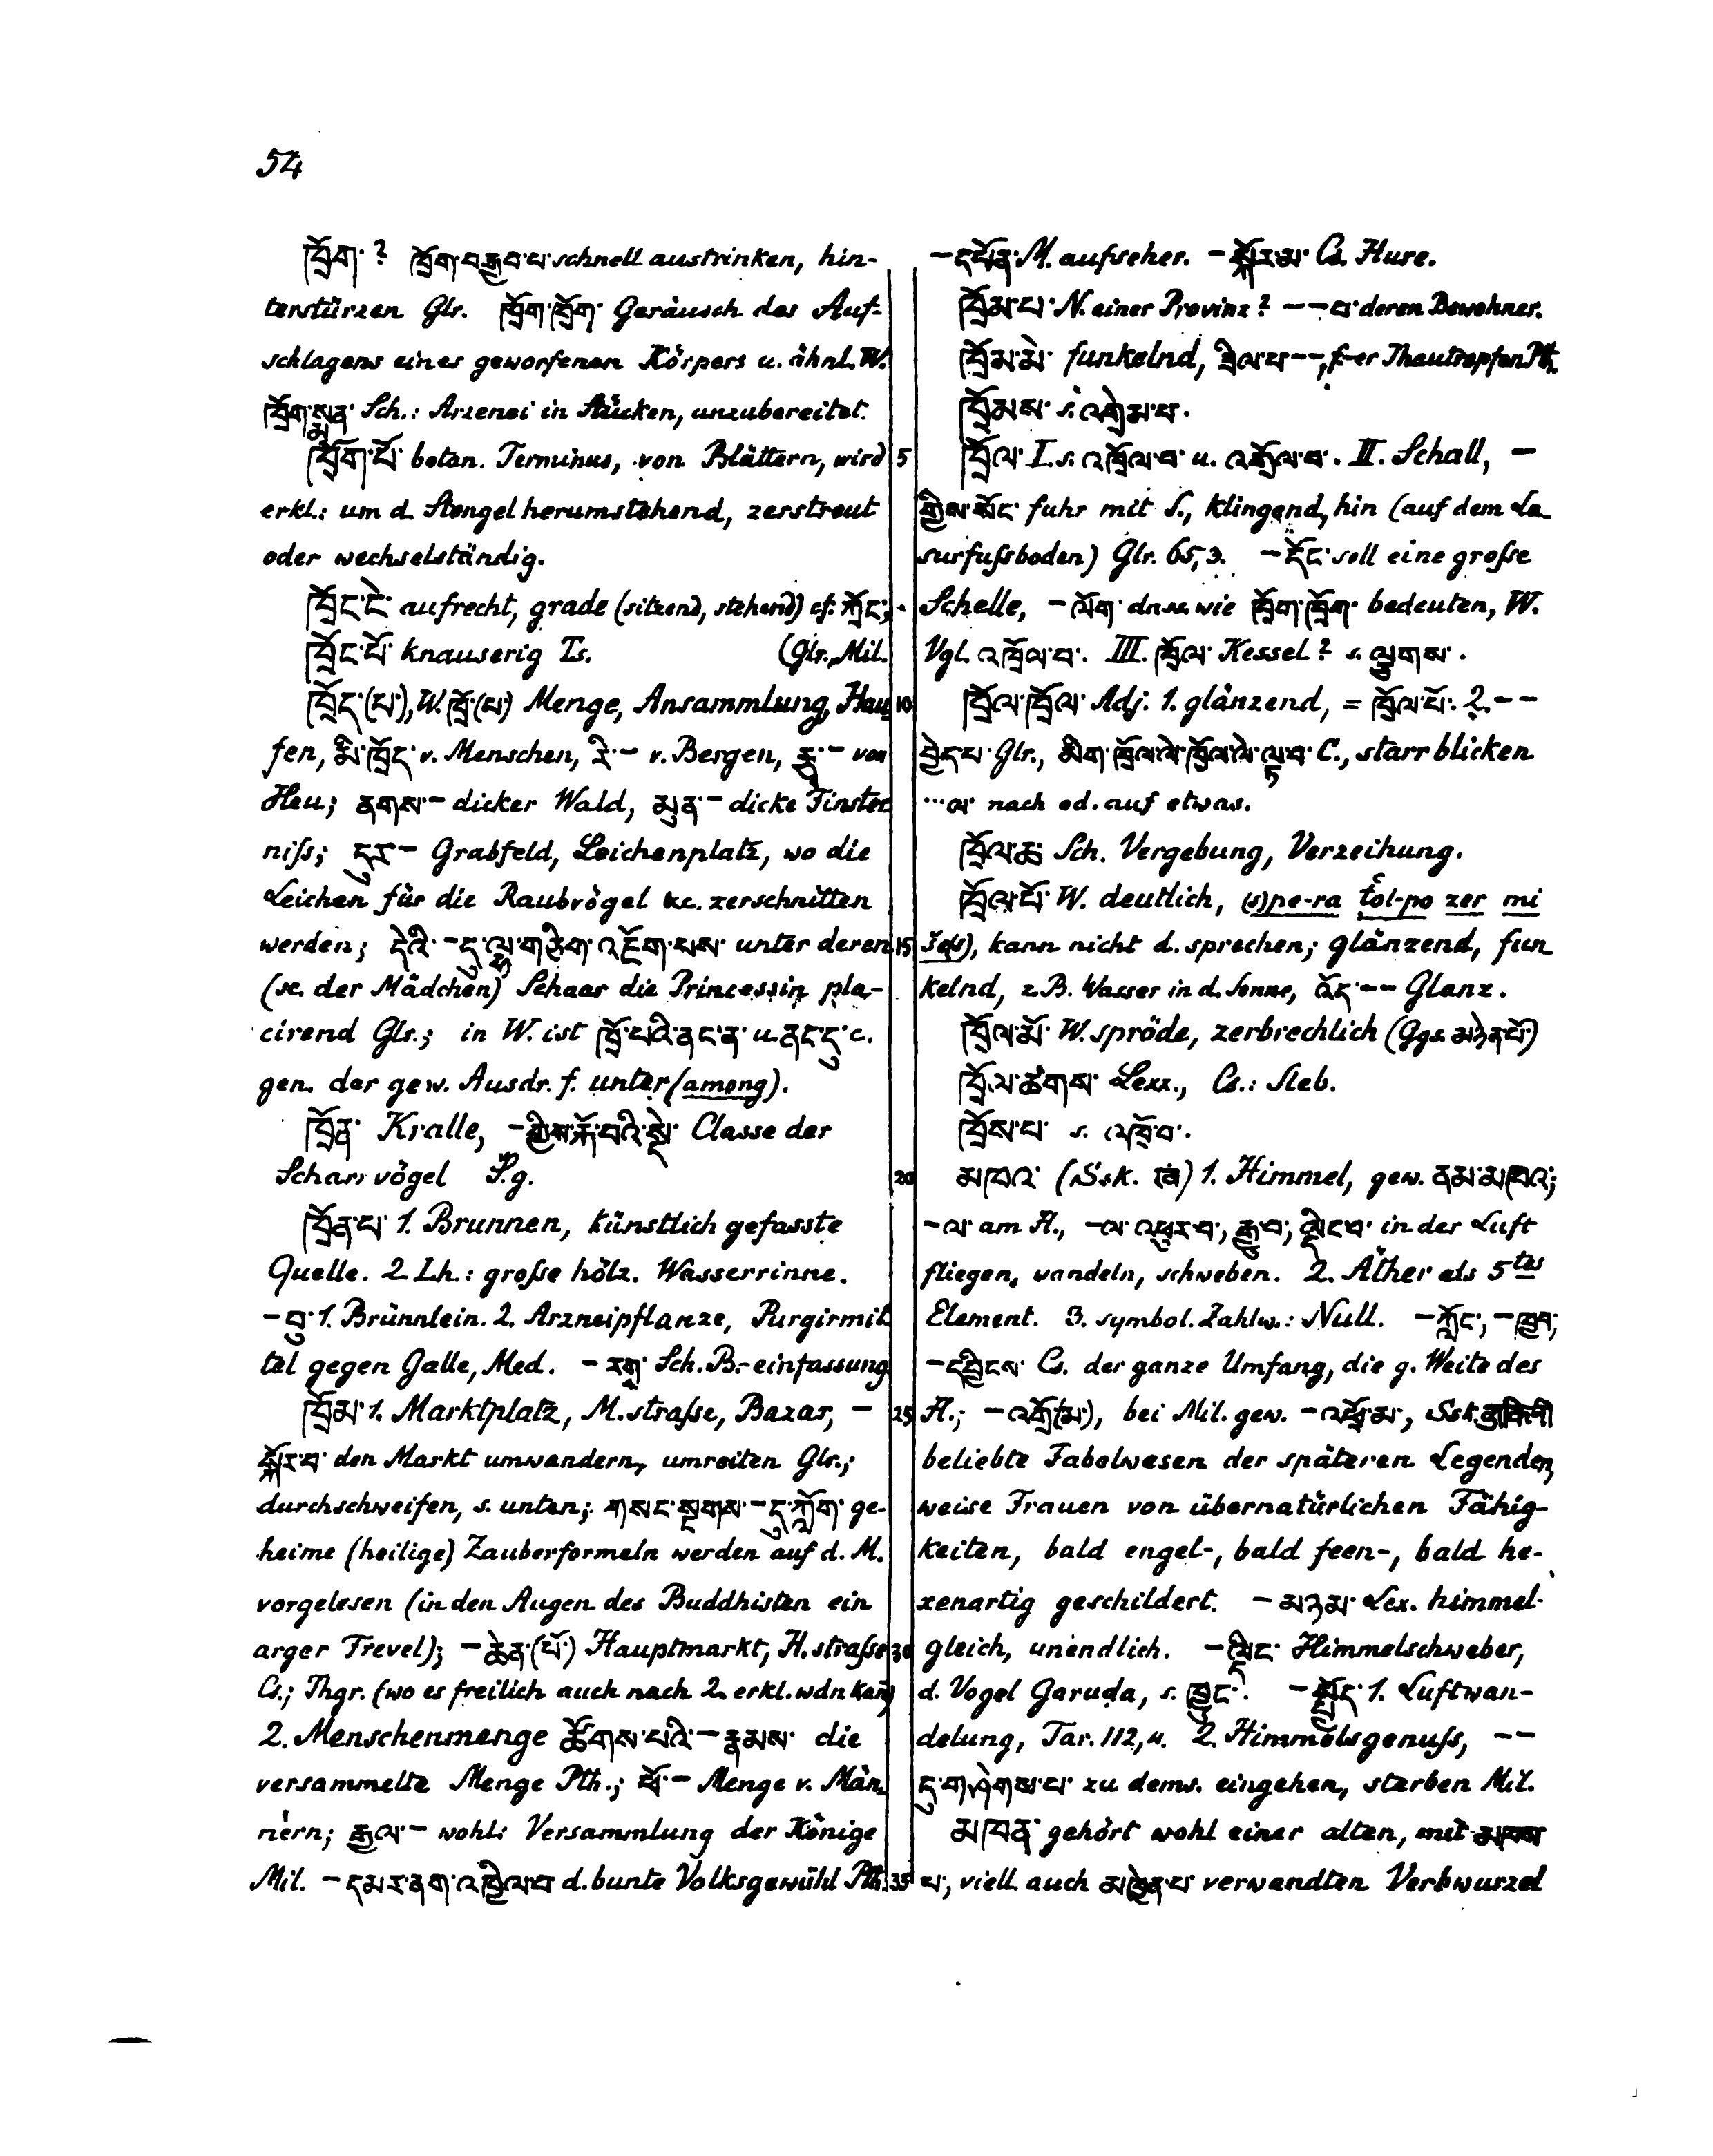 54
ཁྲོག་? ཁྲོག་བརྒྱབ་པ་ schnell austrinken, hin-
terstürzen Glr. ཁྲོག་ཁྲོག་ Geräusch des Auf-
schlagens eines geworfenen Körpers u. ähnl. W.
ཁྲོག་སྨན་ Sch.: Arzenei in Stücken, unzubereitet.
ཁྲོག་པོ་ botan. Terminus, von Blättern, wird 5
erkl.: um d. Stengel herumstehend, zerstreut
oder wechselständig.
ཁྲོང་ངེ་ aufrecht, grade (sitzend, stehend) cf. ཀྲོང་;
ཁྲོང་པོ་ knauserig Ts. (Glr., Mil.
ཁྲོད་(པ་), W. ཁྲོ་(པ་) Menge, Ansammlung, Hau- 10
fen, མི་ཁྲོད་ v. Menschen, རི་– v. Bergen, རྩྭ་– von
Heu; ནགས་– dicker Wald, མུན་– dicke Finster-
niſs; དུར་– Grabfeld, Leichenplatz, wo die
Leichen für die Raubvögel &c. zerschnitten
werden; དེའི་–དུ་ལྷ་གཅིག་འཇོག་པས་ unter deren 15
(sc. der Mädchen) Schaar die Princessin pla-
cirend Glr.; in W. ist ཁྲོ་པའི་ནང་ན་ u. ནང་དུ་ c.
gen. der gew. Ausdr. f. unter (among).
ཁྲོན་ Kralle, –གྱིས་རྐོ་བའི་སྡེ་ Classe der
Scharrvögel S.g. 20
ཁྲོན་པ་ 1. Brunnen, künstlich gefasste
Quelle. 2. Lh.: groſse hölz. Wasserrinne.
–བུ་ 1. Brünnlein. 2. Arzneipflanze, Purgirmit-
tel gegen Galle, Med. – Sch. B.-einfassung.
ཁྲོམ་ 1. Marktplatz, M.straſse, Bazar, – 25
སྐོར་བ་ den Markt umwandern, umreiten Glr.;
durchschweifen, s. unten; གསང་སྔགས་–དུ་ཀློག་ ge-
heime (heilige) Zauberformeln werden auf d. M.
vorgelesen (in den Augen des Buddhisten ein
arger Frevel); –ཆེན་(པོ་) Hauptmarkt, H.straſse 30
Cs.; Thgr. (wo es freilich auch nach 2. erkl. wdn kann)
2. Menschenmenge ཚོགས་པའི་–རྣམས་ die
versammelte Menge Pth.; ཕོ་– Menge v. Män-
nern; རྒྱལ་– wohl: Versammlung der Könige
Mil. –དམར་ནག་འཁྱིལ་བ d. bunte Volksgewühl Pth. 35
–དཔོན་ M. aufseher. –སྐོར་མ་ Cs. Hure.
ཁྲོམ་པ་ N. einer Provinz? ––བ་ deren Bewohner.
ཁྲོམ་མེ་ funkelnd, ཟིལ་པ་––, f–er Thautropfen Pth.
ཁྲོམས་ s. འགྲེམ་པ་.
ཁྲོལ་ I. s. འཁྲོལ་བ་ u. འགྲོལ་བ་. II. Schall, –
གྱིས་སོང་ fuhr mit S., klingend, hin (auf dem La-
surfuſsboden) Glr. 65,3. –ཇོང་ soll eine groſse
Schelle, –ལོག་ dass. wie ཁྲོག་ཁྲོག་ bedeuten, W.
Vgl. འཁྲོལ་བ་. III. ཁྲོལ་ Kessel? s. ལྕུགས་.
ཁྲོལ་ཁྲོལ་ Adj. 1. glänzend, = ཁྲོལ་པོ་. 2. ––
བྱེད་པ་ Glr., མིག་ཁྲོལ་ལེ་ཁྲོལ་ལེ་ལྟ་བ་ C., starr blicken
...ལ་ nach od. auf etwas.
ཁྲོལ་ཆ་ Sch. Vergebung, Verzeihung.
ཁྲོལ་པོ་ W. deutlich, (s)pe-ra ṭol-po zer mi
, kann nicht d. sprechen; glänzend, fun-
kelnd, z.B. Wasser in d. Sonne, འོད་–– Glanz.
ཁྲོལ་མོ་ W. spröde, zerbrechlich (Ggs. མཉེན་པོ་)
ཁྲོལ་ཚགས་ Lexx., Cs.: Sieb.
ཁྲོས་པ་ s. འཁྲོ་བ་.
མཁའ་ (Ssk. खं) 1. Himmel, gew. ནམ་མཁའ་;
–ལ་ am H., –ལ་འཕུར་བ་, རྒྱུ་བ་, ལྡིང་བ་ in der Luft
fliegen, wandeln, schweben. 2. Äther als 5tes
Element. 3. symbol. Zahlw.: Null. –ཀློང་, –ཁྱབ་,
–དབྱིངས་ Cs. der ganze Umfang, die g. Weite des
H.; –འགྲོ་(མ་), bei Mil. gew. –འགྲོ་མ་, Ssk.
beliebte Fabelwesen der späteren Legenden,
weise Frauen von übernatürlichen Fähig-
keiten, bald engel-, bald feen-, bald he-
xenartig geschildert. –མཉམ་ Lex. himmel-
gleich, unendlich. –ལྡིང་ Himmelschweber,
d. Vogel Garuḍa, s. ཁྱུང་. –སྤྱོད་ 1. Luftwan-
delung, Tar. 112,4. 2. Himmelsgenuſs, ––
དུ་གཤེགས་པ་ zu dems. eingehen, sterben Mil.
མཁན་ gehört wohl einer alten, mit མཁས་
པ་, viell. auch མཁྱེན་པ་ verwandten Verbwurzel